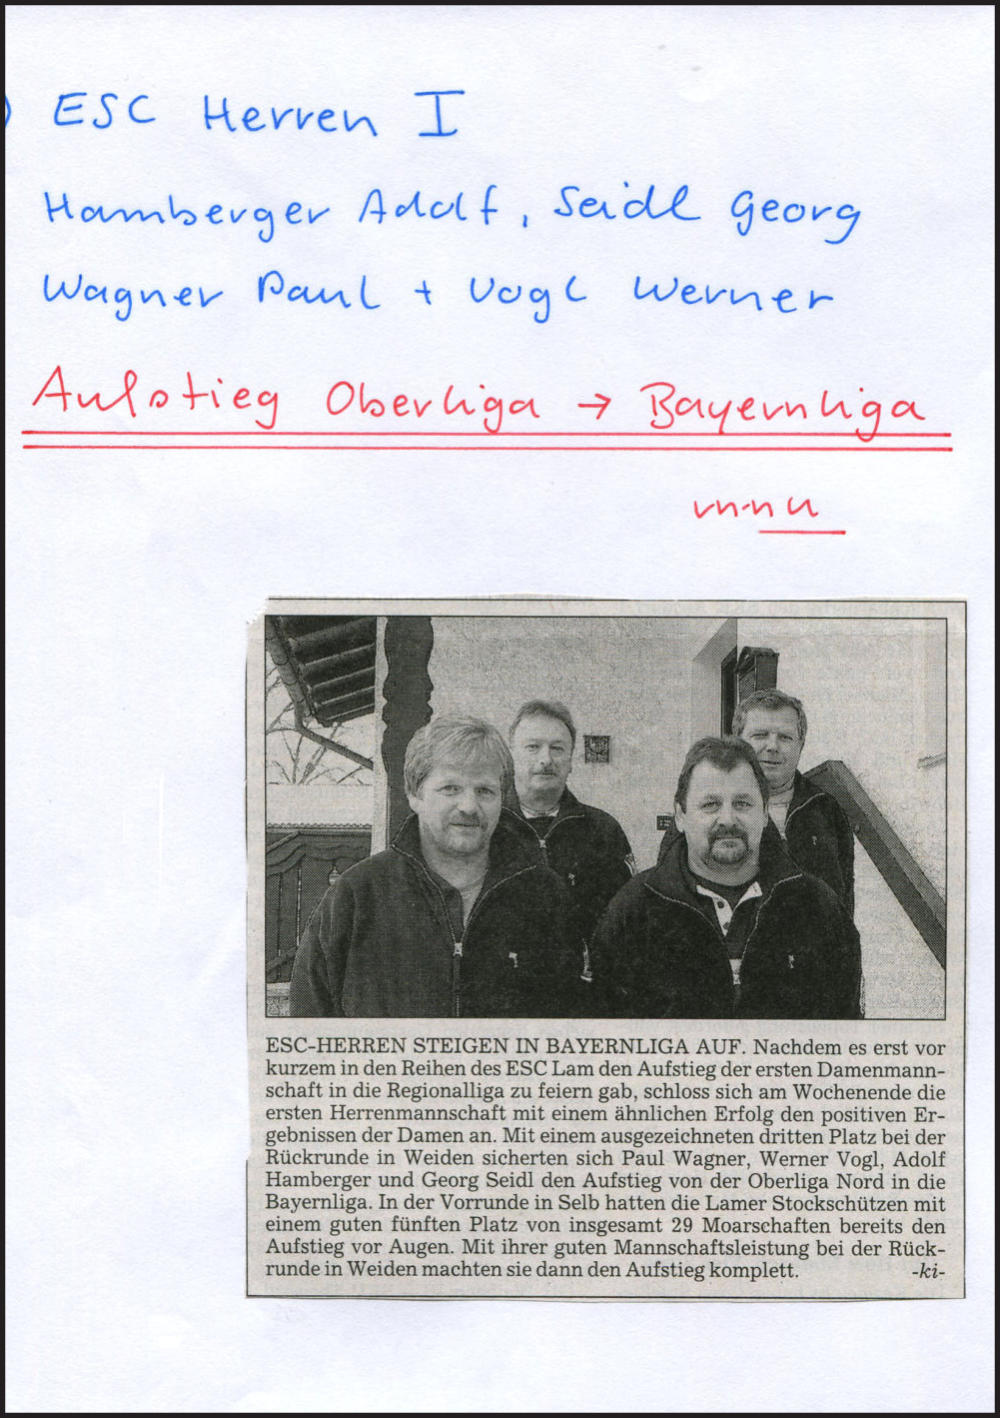 ESC Herren I
Hamberger Adolf, Seidl Georg
Wagner Paul + Vogl Werner
Aufstieg Oberliga → Bayernliga
ESC-HERREN STEIGEN IN BAYERNLIGA AUF. Nachdem es erst vor
kurzem in den Reihen des ESC Lam den Aufstieg der ersten Damenmann-
schaft in die Regionalliga zu feiern gab, schloss sich am Wochenende die
ersten Herrenmannschaft mit einem ähnlichen Erfolg den positiven Er-
gebnissen der Damen an. Mit einem ausgezeichneten dritten Platz bei der
Rückrunde in Weiden sicherten sich Paul Wagner, Werner Vogl, Adolf
Hamberger und Georg Seidl den Aufstieg von der Oberliga Nord in die
Bayernliga. In der Vorrunde in Selb hatten die Lamer Stockschützen mit
einem guten fünften Platz von insgesamt 29 Moarschaften bereits den
Aufstieg vor Augen. Mit ihrer guten Mannschaftsleistung bei der Rück-
runde in Weiden machten sie dann den Aufstieg komplett. -ki-